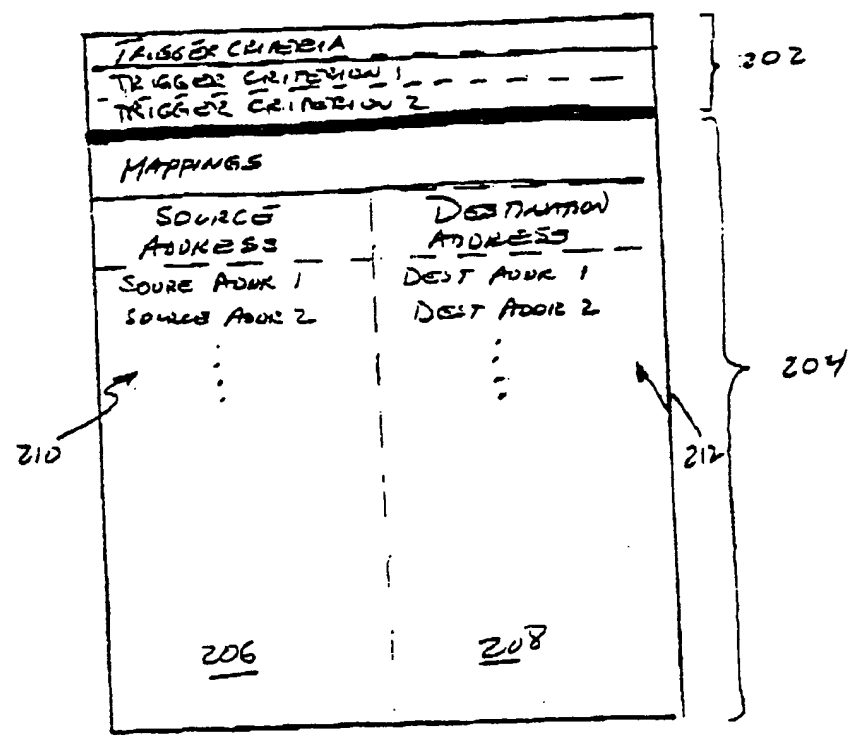 TRIGGER CRITERIA
202
TRIGGER CRITERION 1
TRIGGER CRITERION 2
MAPPINGS
SOURCE ADDRESS
DESTINATION ADDRESS
SOURE ADDR 1
DEST ADDR 1
SOURCE ADDR 2
DEST ADDR 2
204
210
212
206
208